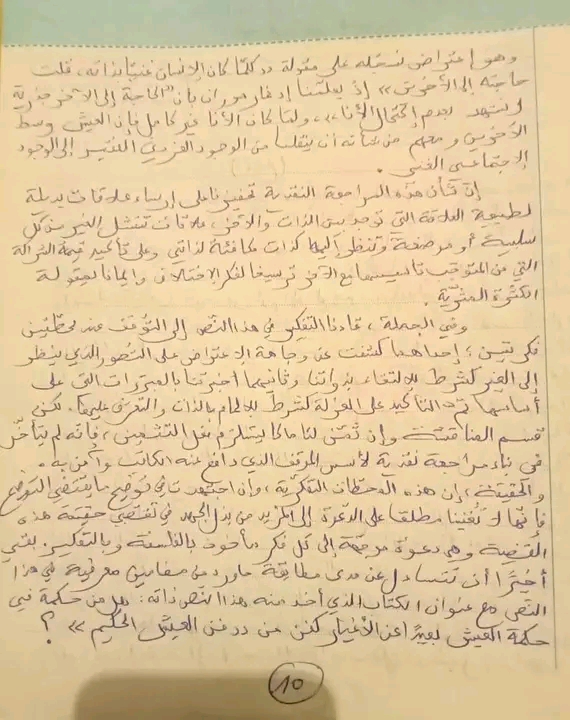 وهو إعتراض نسجّله على مقولة « كلّما كان الإنسان غنيّا بذاته، قلت
حاجته إلى الآخرين » إذ يعلّمنا إدغار موران بأن « الحاجة إلى الآخر جذرية
وتشهد بعدم إكتمال الأنا »، ولمّا كان الأنا غير كامل فإن العيش وسط
الآخرين و معهم من شأنه أن ينقلنا من الوجود الفردي الفقير إلى الوجود
الإجتماعي الغني.
إن شأن هذه المراجعة النقدية تحفيزنا على إرساء علاقات بديلة
لطبيعة العلاقة التي توجد بين الذات والآخر، علاقات تنتشل الغير من كلّ
سلبية أو موضعة وتنظر إليها كذات مكافئة لذاتي وعلى تأكيد قيمة الشراكة
التي من المتوقّب تأسيسها مع الآخر ترسيخا لفكر الإختلاف وإيمانا بمقولة
الكثرة المثرية.
وفي الجملة، قادنا التفكير في هذا النّص إلى التوقف عند محطّتين
فكريتين؛ إحداهما كشفت عن وجاهة الإعتراض على التصور الذي ينظر
إلى الغير كشرط للإلتقاء بذواتنا وثانيهما أخبرتنا بالمبررات التي على
أساسها تمّ التأكيد على العزلة كشرط للإلمام بالذات والتعرف عليها. لكن
قسم المناقشة وإن ثمّن لنا ما كان يستلزم فعل التثمين، فإنّه لم يتأخّر
في بناء مراجعة نقدية لأسس الموقف الذي دافع عنه الكاتب وآمن به.
والحقيقة، إن هذه المحطات التفكرية، وإن اجتهدت في توضيح ما يقتضي التوضيح
فإنّها لا تُغنينا مطلقا على الدعوة إلى المزيد من بذل الجهد في تقصّي حقيقة هذه
القضية وهي دعوة موجّهة إلى كل فكر مأخوذ بالفلسفة وبالتفكير. بقي
أخيرًا أن نتساءل عن مدى مطابقة ما ورد من مضامين معرفية في هذا
النصّ مع عنوان الكتاب الذي أخذ منه هذا النص ذاته: هل من حكمة في
حكمة العيش بعيدًا عن الأغيار كفن من « فن العيش الحكيم » ؟
10